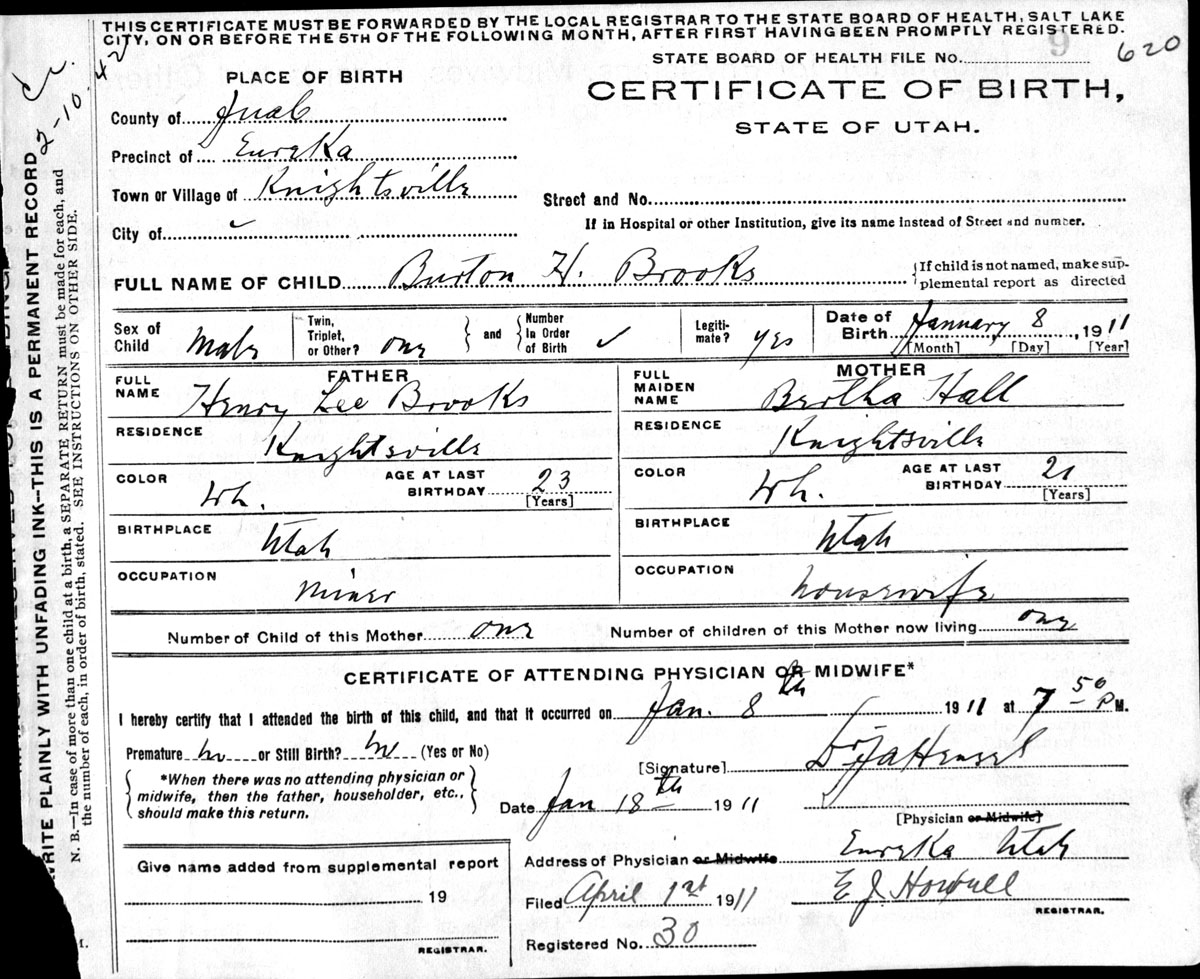 THIS CERTIFICATE MUST BE FORWARDED BY THE LOCAL REGISTRAR TO THE STATE BOARD OF HEALTH, SALT LAKE
CITY, ON OR BEFORE THE 5TH OF THE FOLLOWING MONTH, AFTER FIRST HAVING BEEN PROMPTLY REGISTERED.
2-10-42
STATE BOARD OF HEALTH FILE No. 9 620
PLACE OF BIRTH
CERTIFICATE OF BIRTH,
STATE OF UTAH.
County of Juab
Precinct of Eureka
Town or Village of Knightsville
Street and No.
City of ✓
If in Hospital or other Institution, give its name instead of Street and number.
FULL NAME OF CHILD Burton H. Brooks
{If child is not named, make sup-
plemental report as directed
Sex of Child Male
Twin, Triplet, or Other? one
and
Number In Order of Birth ✓
Legiti-mate? yes
Date of Birth January 8, 1911
[Month] [Day] [Year]
FATHER
FULL NAME Henry Lee Brooks
RESIDENCE Knightsville
COLOR Wh.
AGE AT LAST BIRTHDAY 23
[Years]
BIRTHPLACE Utah
OCCUPATION Miner
MOTHER
FULL MAIDEN NAME Bertha Hall
RESIDENCE Knightsville
COLOR Wh.
AGE AT LAST BIRTHDAY 21
[Years]
BIRTHPLACE Utah
OCCUPATION housewife
Number of Child of this Mother one
Number of children of this Mother now living one
CERTIFICATE OF ATTENDING PHYSICIAN OR MIDWIFE*
I hereby certify that I attended the birth of this child, and that it occurred on Jan. 8th 1911 at 7 50 P M.
Premature No or Still Birth? No (Yes or No)
*When there was no attending physician or
midwife, then the father, householder, etc.,
should make this return.
[Signature]
Date Jan 18th 1911
[Physician or Midwife]
Address of Physician or Midwife Eureka Utah
Filed April 1st 1911
REGISTRAR.
Registered No. 30
Give name added from supplemental report
19
REGISTRAR.
WRITE PLAINLY WITH UNFADING INK--THIS IS A PERMANENT RECORD
N. B.--In case of more than one child at a birth, a SEPARATE RETURN must be made for each, and
the number of each, in order of birth, stated. SEE INSTRUCTIONS ON OTHER SIDE.